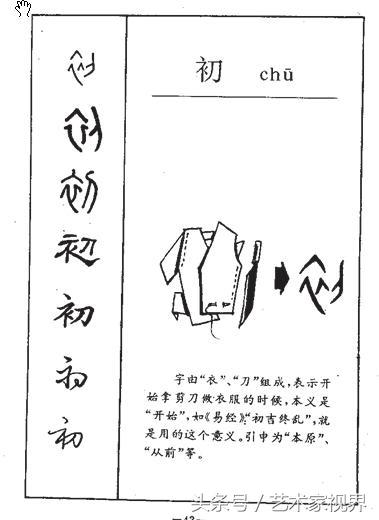 初 chū
初
初
初
初
初
初
初
字由“衣”、“刀”组成，表示开
始拿剪刀做衣服的时候，本义是
“开始”，如《易经》：“初吉终乱”，就
是用的这个意义。引申为“本原”、
“从前”等。
—42—
头条号／艺术家视界